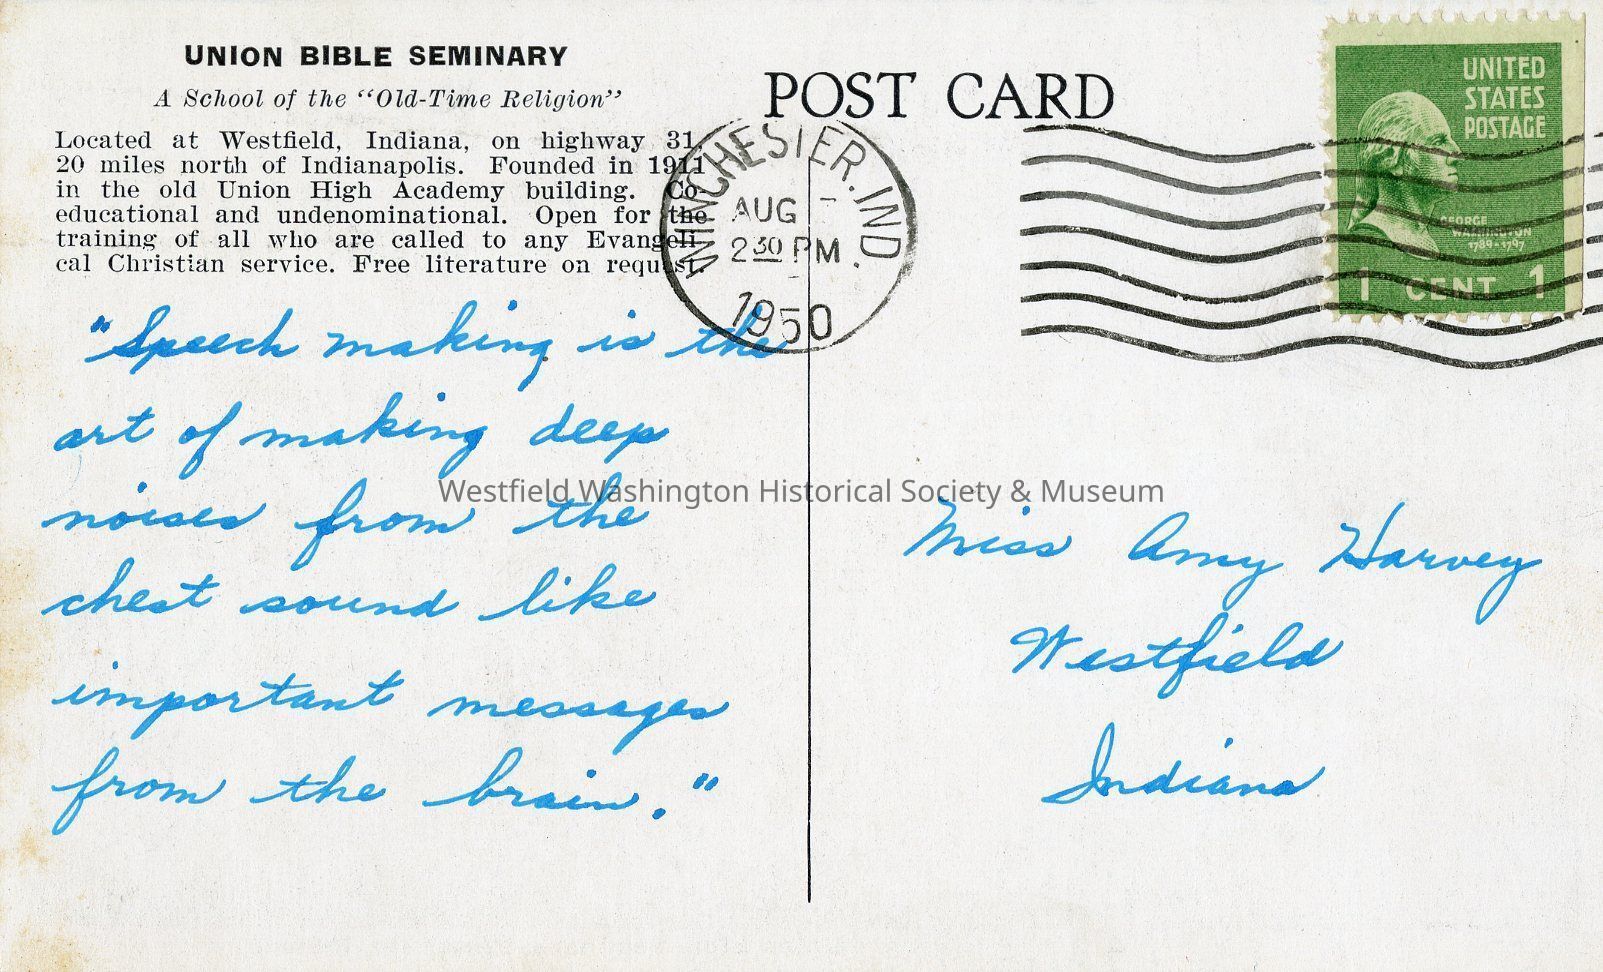 UNION BIBLE SEMINARY
A School of the "Old-Time Religion"
Located at Westfield, Indiana, on highway 31,
20 miles north of Indianapolis. Founded in 1911
in the old Union High Academy building. Co-
educational and undenominational. Open for the
training of all who are called to any Evangeli-
cal Christian service. Free literature on request.
"Speech making is the
art of making deep
noises from the
chest sound like
important messages
from the brain."
POST CARD
WINCHESTER. IND.
AUG
2 30 PM
1950
UNITED
STATES
POSTAGE
GEORGE
WASHINGTON
1789-1797
1 CENT 1
Miss Amy Harvey
Westfield
Indiana
Westfield Washington Historical Society & Museum